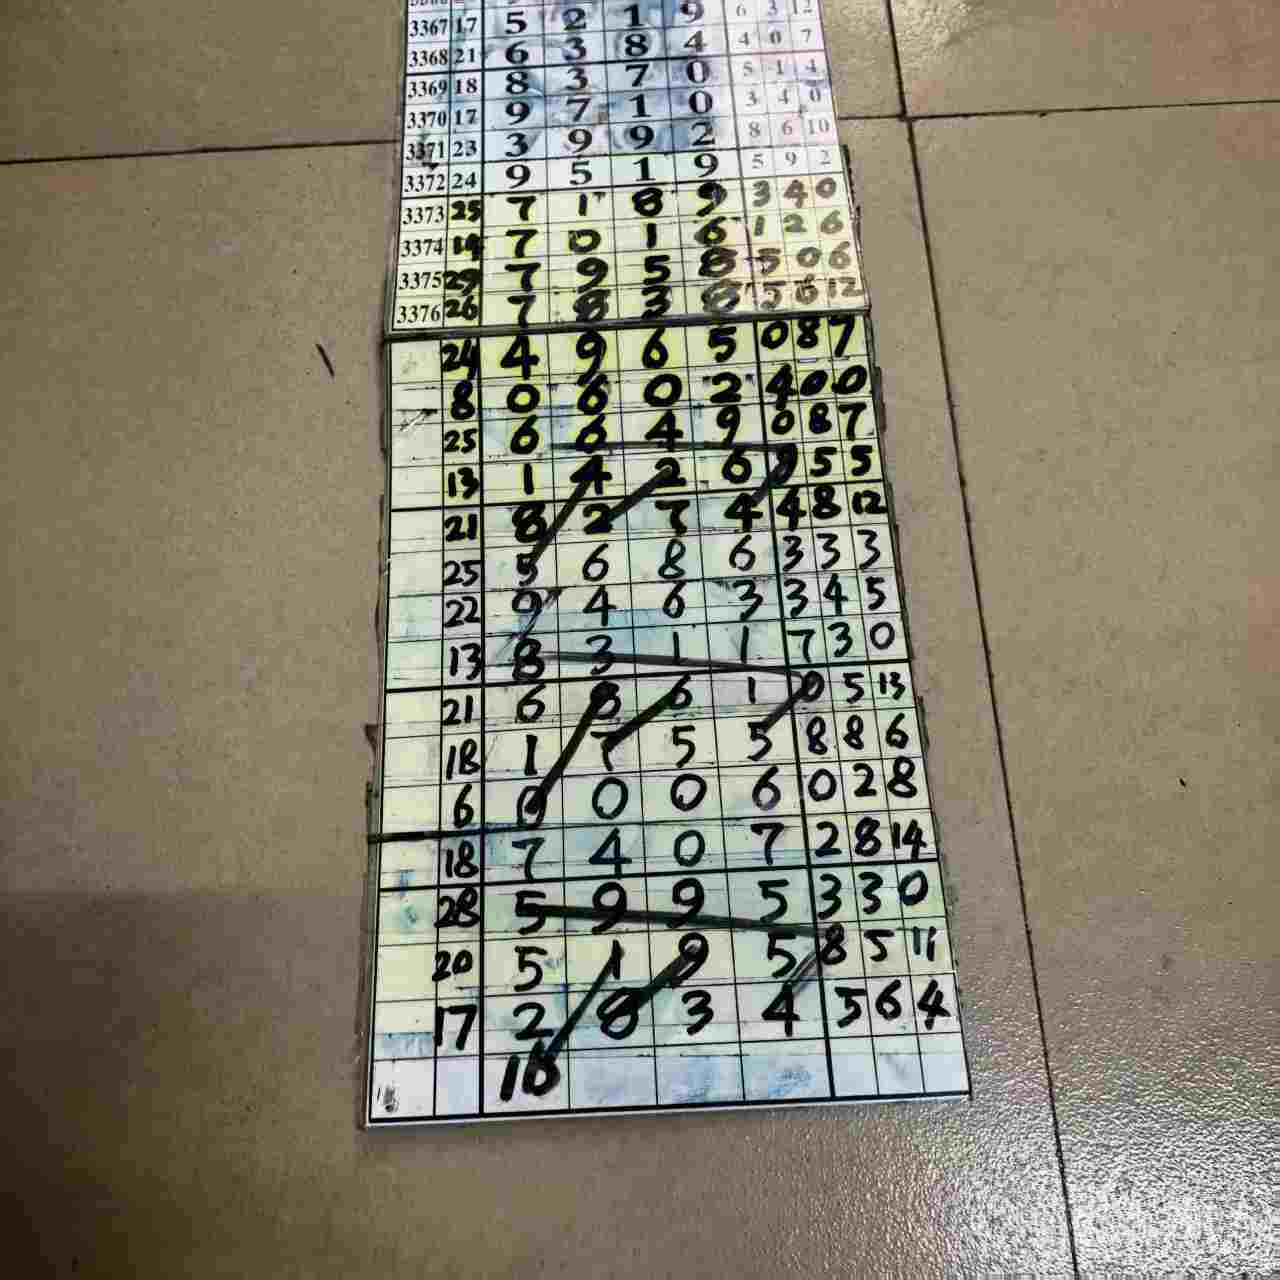 3367 17 5 2 1 9 6 3 12
3368 21 6 3 8 4 4 0 7
3369 18 8 3 7 0 5 1 4
3370 17 9 7 1 0 3 4 0
3371 23 3 9 9 2 8 6 10
3372 24 9 5 1 9 5 9 2
3373 25 7 1 8 9 3 4 0
3374 14 7 0 1 6 1 2 6
3375 29 7 9 5 8 5 0 6
3376 26 7 8 3 8 5 6 12
24 4 9 6 5 0 8 7
8 0 6 0 2 4 0 0
25 6 6 4 9 0 8 7
13 1 4 2 6 5 5
21 8 2 7 4 4 8 12
25 5 6 8 6 3 3 3
22 9 4 6 3 3 4 5
13 8 3 1 1 7 3 0
21 6 8 6 1 0 5 13
18 1 7 5 5 8 8 6
6 0 0 0 6 0 2 8
18 7 4 0 7 2 8 14
28 5 9 9 5 3 3 0
20 5 1 9 5 8 5 11
17 2 8 3 4 5 6 4
16